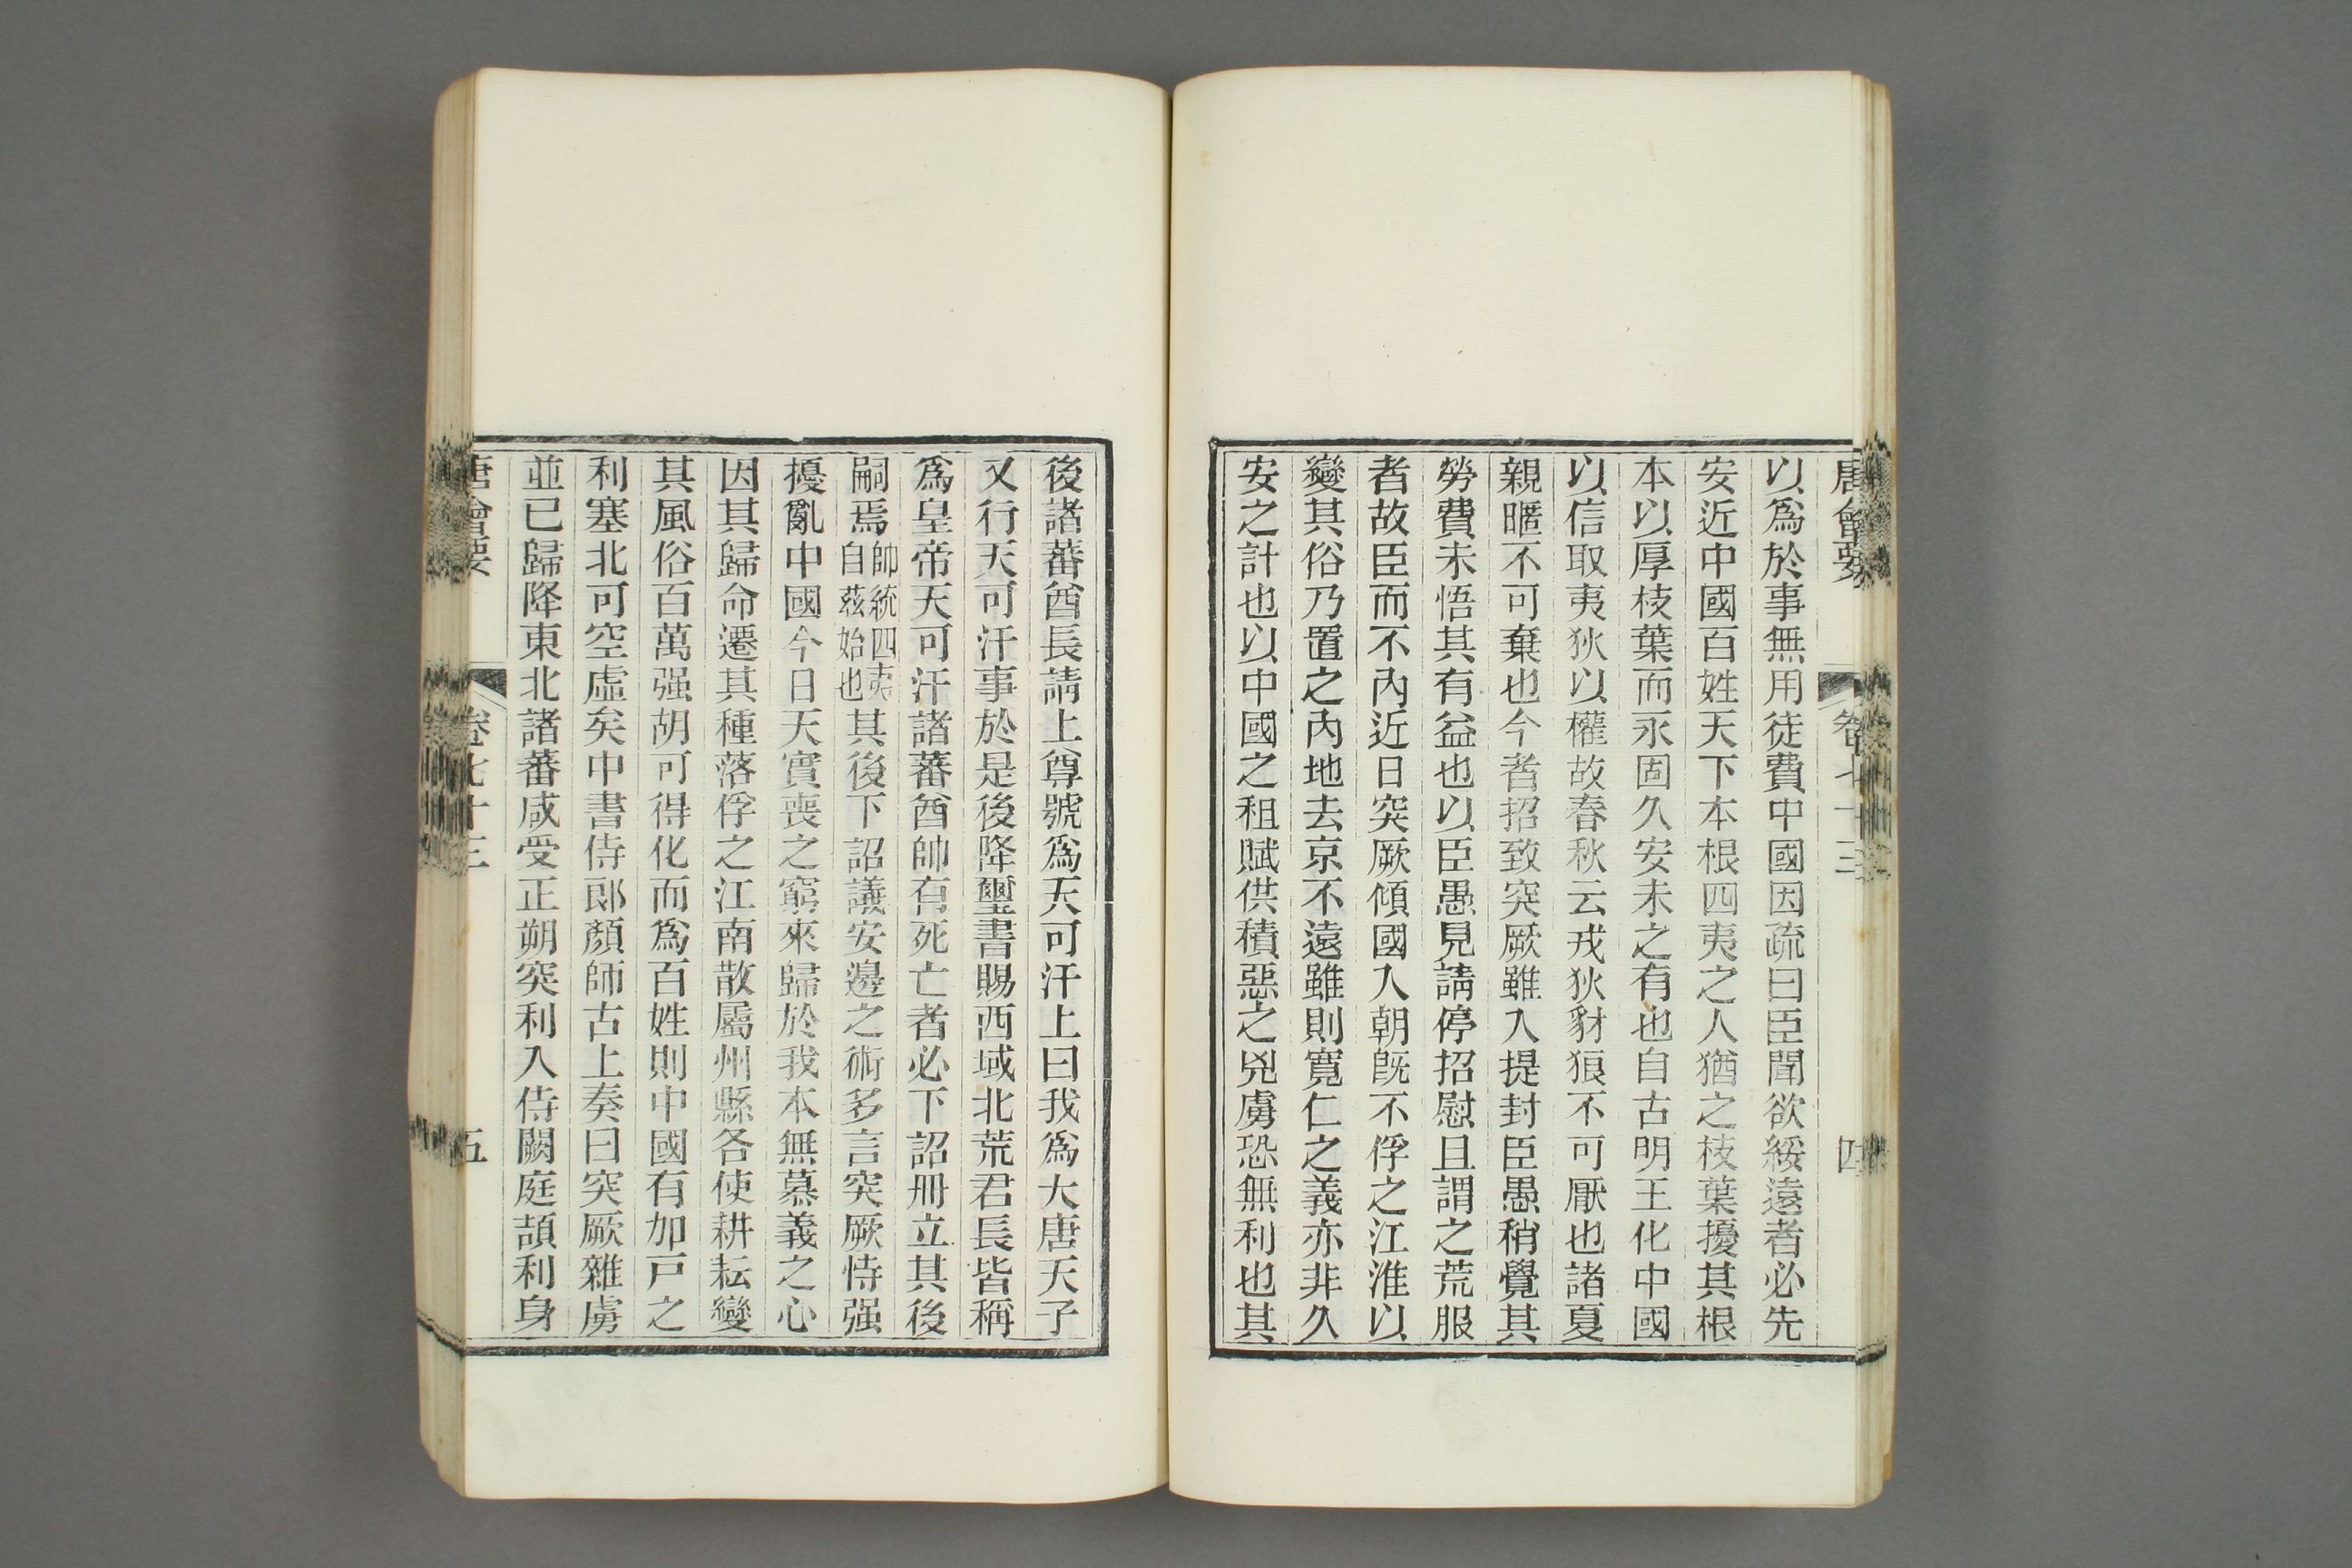 唐會要 卷七十三 四
以爲於事無用徒費中國因疏曰臣聞欲綏遠者必先
安近中國百姓天下本根四夷之人猶之枝葉擾其根
本以厚枝葉而永固久安未之有也自古明王化中國
以信取夷狄以權故春秋云戎狄豺狼不可厭也諸夏
親暱不可棄也今者招致突厥雖入提封臣愚稍覺其
勞費未悟其有益也以臣愚見請停招慰且謂之荒服
者故臣而不內近日突厥傾國入朝旣不俘之江淮以
變其俗乃置之內地去京不遠雖則寬仁之義亦非久
安之計也以中國之租賦供積惡之兇虜恐無利也其
後諸蕃酋長請上尊號爲天可汗上曰我爲大唐天子
又行天可汗事於是後降璽書賜西域北荒君長皆稱
爲皇帝天可汗諸蕃酋帥有死亡者必下詔冊立其後
嗣焉帥統四夷自茲始也其後下詔議安邊之術多言突厥恃强
擾亂中國今日天實喪之窮來歸於我本無慕義之心
因其歸命遷其種落俘之江南散屬州縣各使耕耘變
其風俗百萬强胡可得化而爲百姓則中國有加戸之
利塞北可空虛矣中書侍郎顏師古上奏曰突厥雜虜
並已歸降東北諸蕃咸受正朔突利入侍闕庭頡利身
唐會要 卷七十三 五